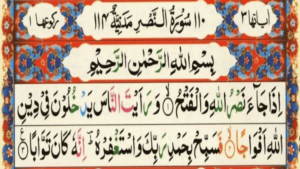 اٰیاتها ۳ ۱۱۰ سُوْرَةُ النَّصْرِ مَدَنِيَّةٌ ۱۱۴ رکوعها ۱
بِسْمِ اللّٰهِ الرَّحْمٰنِ الرَّحِيْمِ
اِذَا جَآءَ نَصْرُ اللّٰهِ وَالْفَتْحُ ۙ۱ وَرَاَيْتَ النَّاسَ يَدْخُلُوْنَ فِيْ دِيْنِ
اللّٰهِ اَفْوَاجًا ۙ۲ فَسَبِّحْ بِحَمْدِ رَبِّكَ وَاسْتَغْفِرْهُ ؕ اِنَّهٗ كَانَ تَوَّابًا ۳